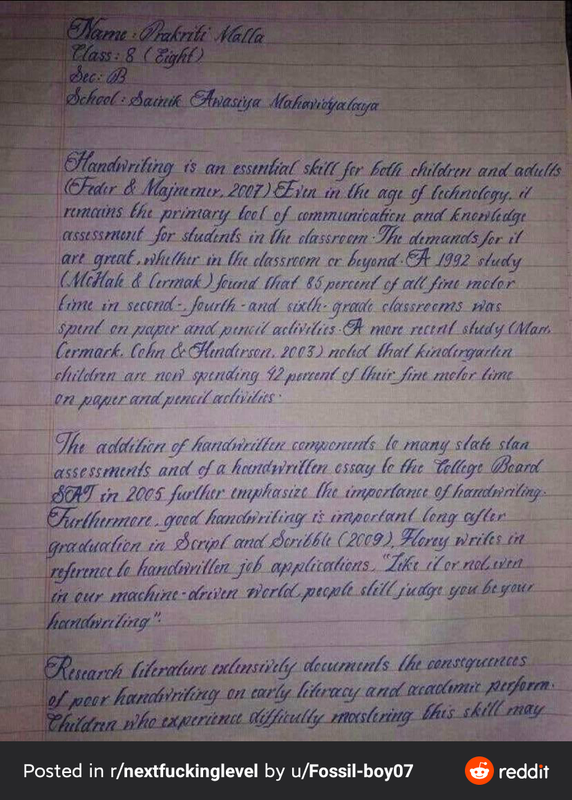 Name : Prakriti Malla
Class : 8 (Eight)
Sec : B
School : Sainik Awasiya Mahavidyalaya
Handwriting is an essential skill for both children and adults
(Feder & Majnemer, 2007) Even in the age of technology, it
remains the primary tool of communication and knowledge
assessment for students in the classroom. The demands for it
are great, whether in the classroom or beyond. A 1992 study
(McHale & Cermak) found that 85 percent of all fine motor
time in second-, fourth-and sixth-grade classrooms was
spent on paper and pencil activities. A more recent study (Marr,
Cermark, Cohn & Henderson, 2003) noted that kindergarten
children are now spending 42 percent of their fine motor time
on paper and pencil activities.
The addition of handwritten components to many state stan
assessments and of a handwritten essay to the College Board
SAT in 2005 further emphasize the importance of handwriting.
Furthermore, good handwriting is important long after
graduation in Script and Scribble (2009), Florey writes in
reference to handwritten job applications, "Like it or not, even
in our machine-driven world, people still judge you be your
handwriting".
Research literature extensively documents the consequences
of poor handwriting on early literacy and academic perform.
Children who experience difficulty mastering this skill may
Posted in r/nextfuckinglevel by u/Fossil-boy07
reddit